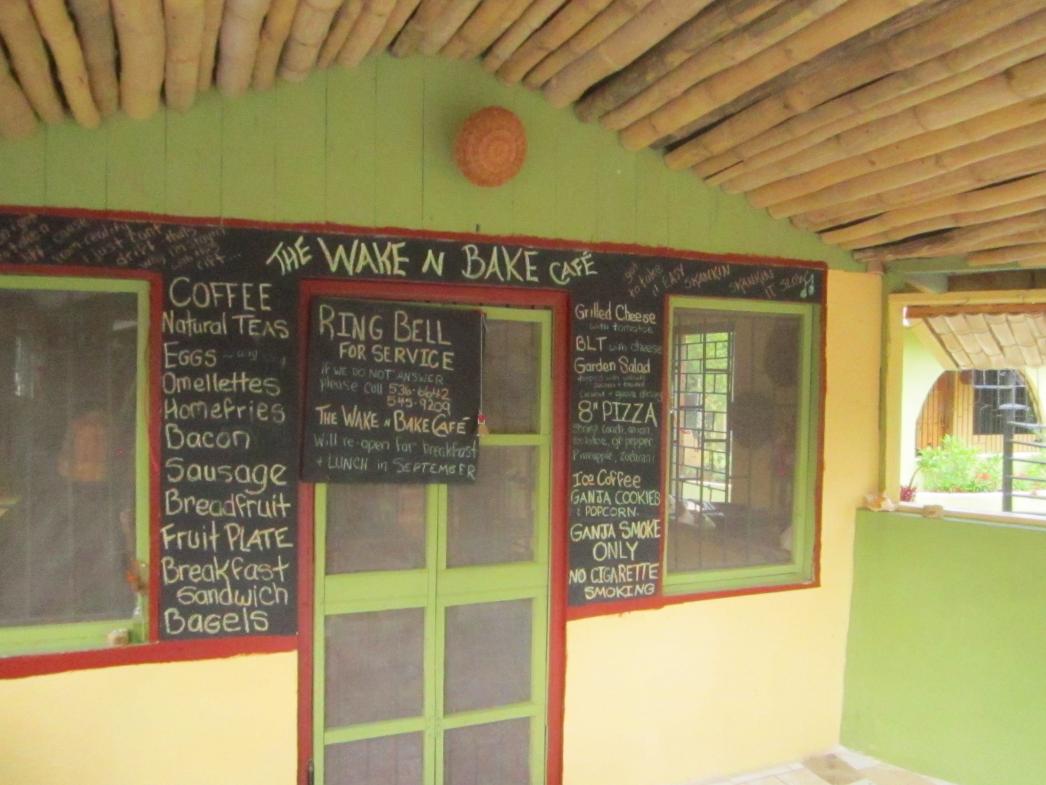 THE WAKE N BAKE CAFÉ
COFFEE
Natural TEAS
EGGS
Omellettes
Homefries
Bacon
Sausage
Breadfruit
Fruit PLATE
Breakfast
Sandwich
Bagels
RING BELL
FOR SERVICE
IF WE DO NOT ANSWER
please call 536-6642
545-9209
THE WAKE N BAKE CAFÉ
Will re-open for breakfast
+ LUNCH in SEPTEMBER
EASY SKANKIN SKANKIN
IT SLOW
Grilled Cheese
with tomatoe
BLT with cheese
Garden Salad
8" PIZZA
Pineapple
Ice Coffee
GANJA COOKIES
& POPCORN.
GANJA SMOKE
ONLY
NO CIGARETTE
SMOKING